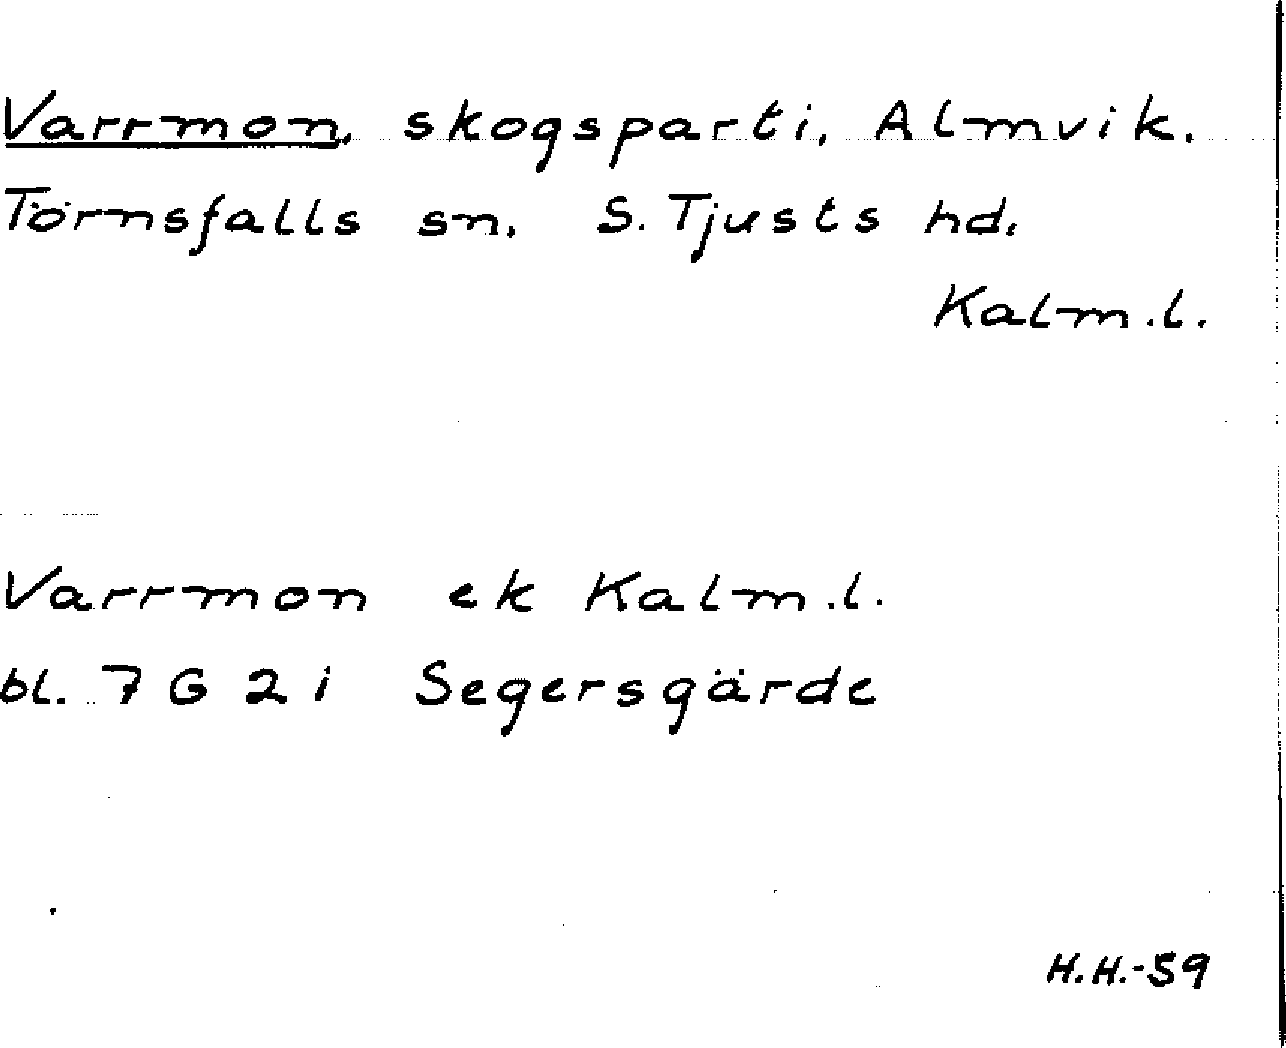 Varrmon, skogsparti, Almvik.
Törnsfalls sn. S. Tjusts hd.
Kalm.l.
Varrmon ek Kalm.l.
bl. 7 G 2 i Segersgärde
H.H.-59